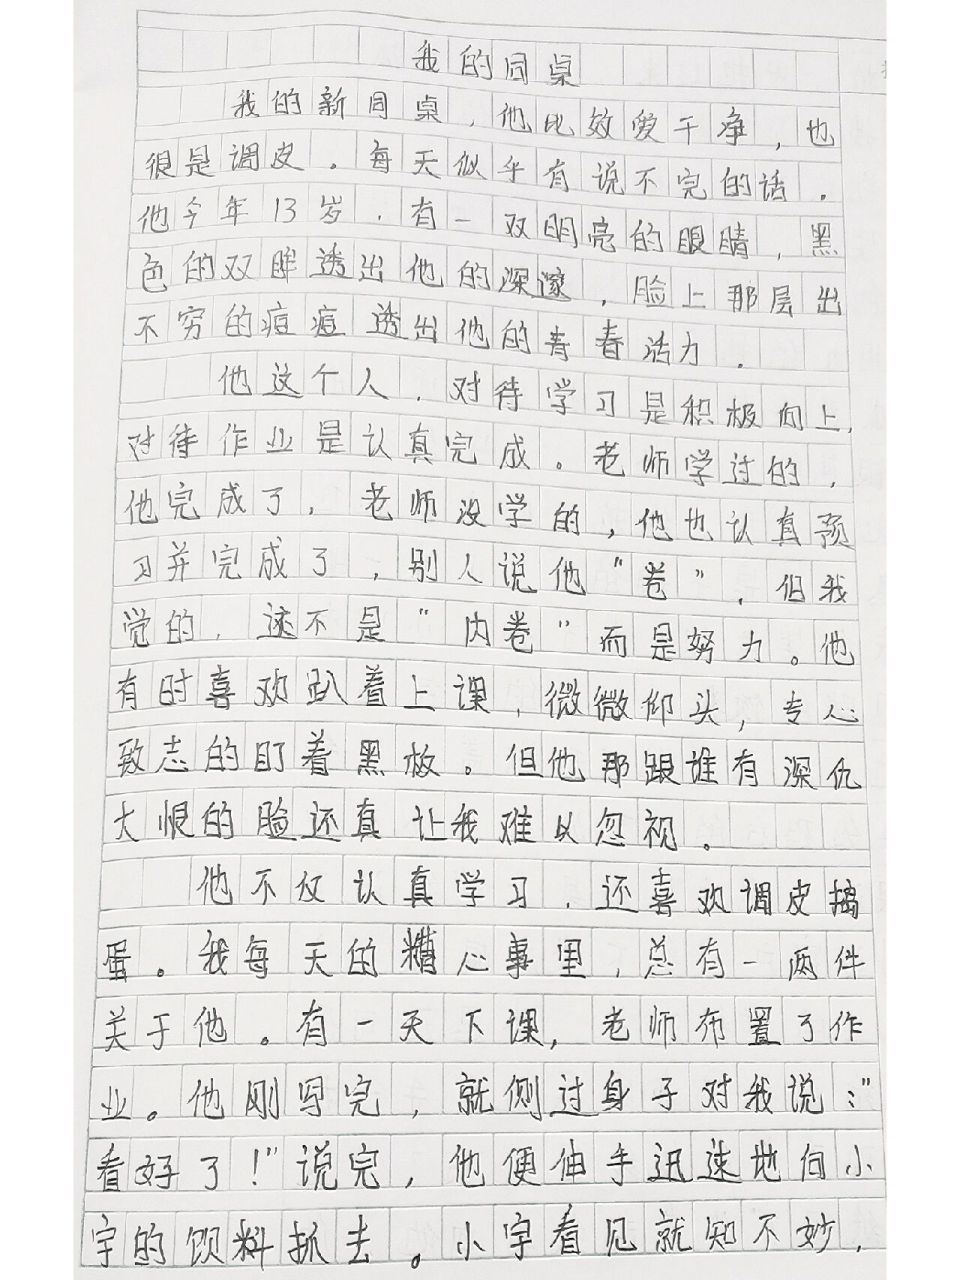 我的同桌
我的新同桌，他比较爱干净，也
很是调皮。每天似乎有说不完的话。
他今年13岁，有一双明亮的眼睛，黑
色的双眸透出他的深邃，脸上那层出
不穷的痘痘透出他的青春活力。
他这个人，对待学习是积极向上，
对待作业是认真完成。老师学过的，
他完成了，老师没学的，他也认真预
习并完成了，别人说他“卷”，但我
觉的，这不是“内卷”而是努力。他
有时喜欢趴着上课，微微仰头，专心
致志的盯着黑板。但他那跟谁有深仇
大恨的脸还真让我难以忽视。
他不仅认真学习，还喜欢调皮捣
蛋。我每天的糟心事里，总有一两件
关于他。有一天下课，老师布置了作
业。他刚写完，就侧过身子对我说：“
看好了！”说完，他便伸手迅速地向小
宇的饮料抓去。小宇看见就知不妙，